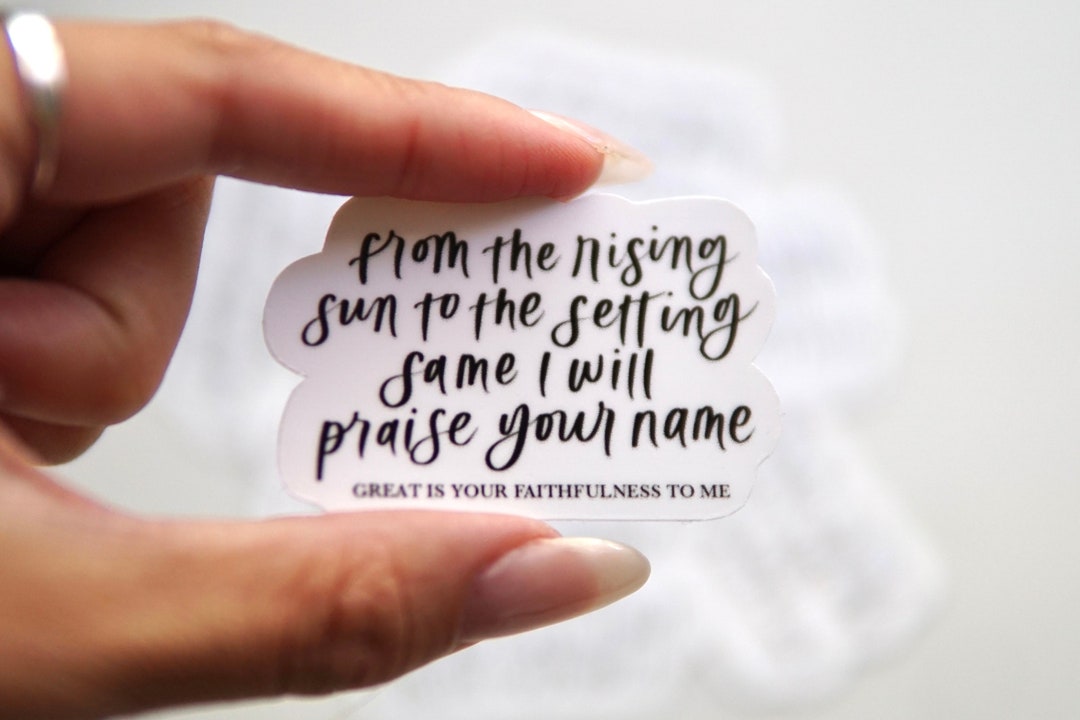 from the rising
sun to the setting
same I will
praise your name
GREAT IS YOUR FAITHFULNESS TO ME